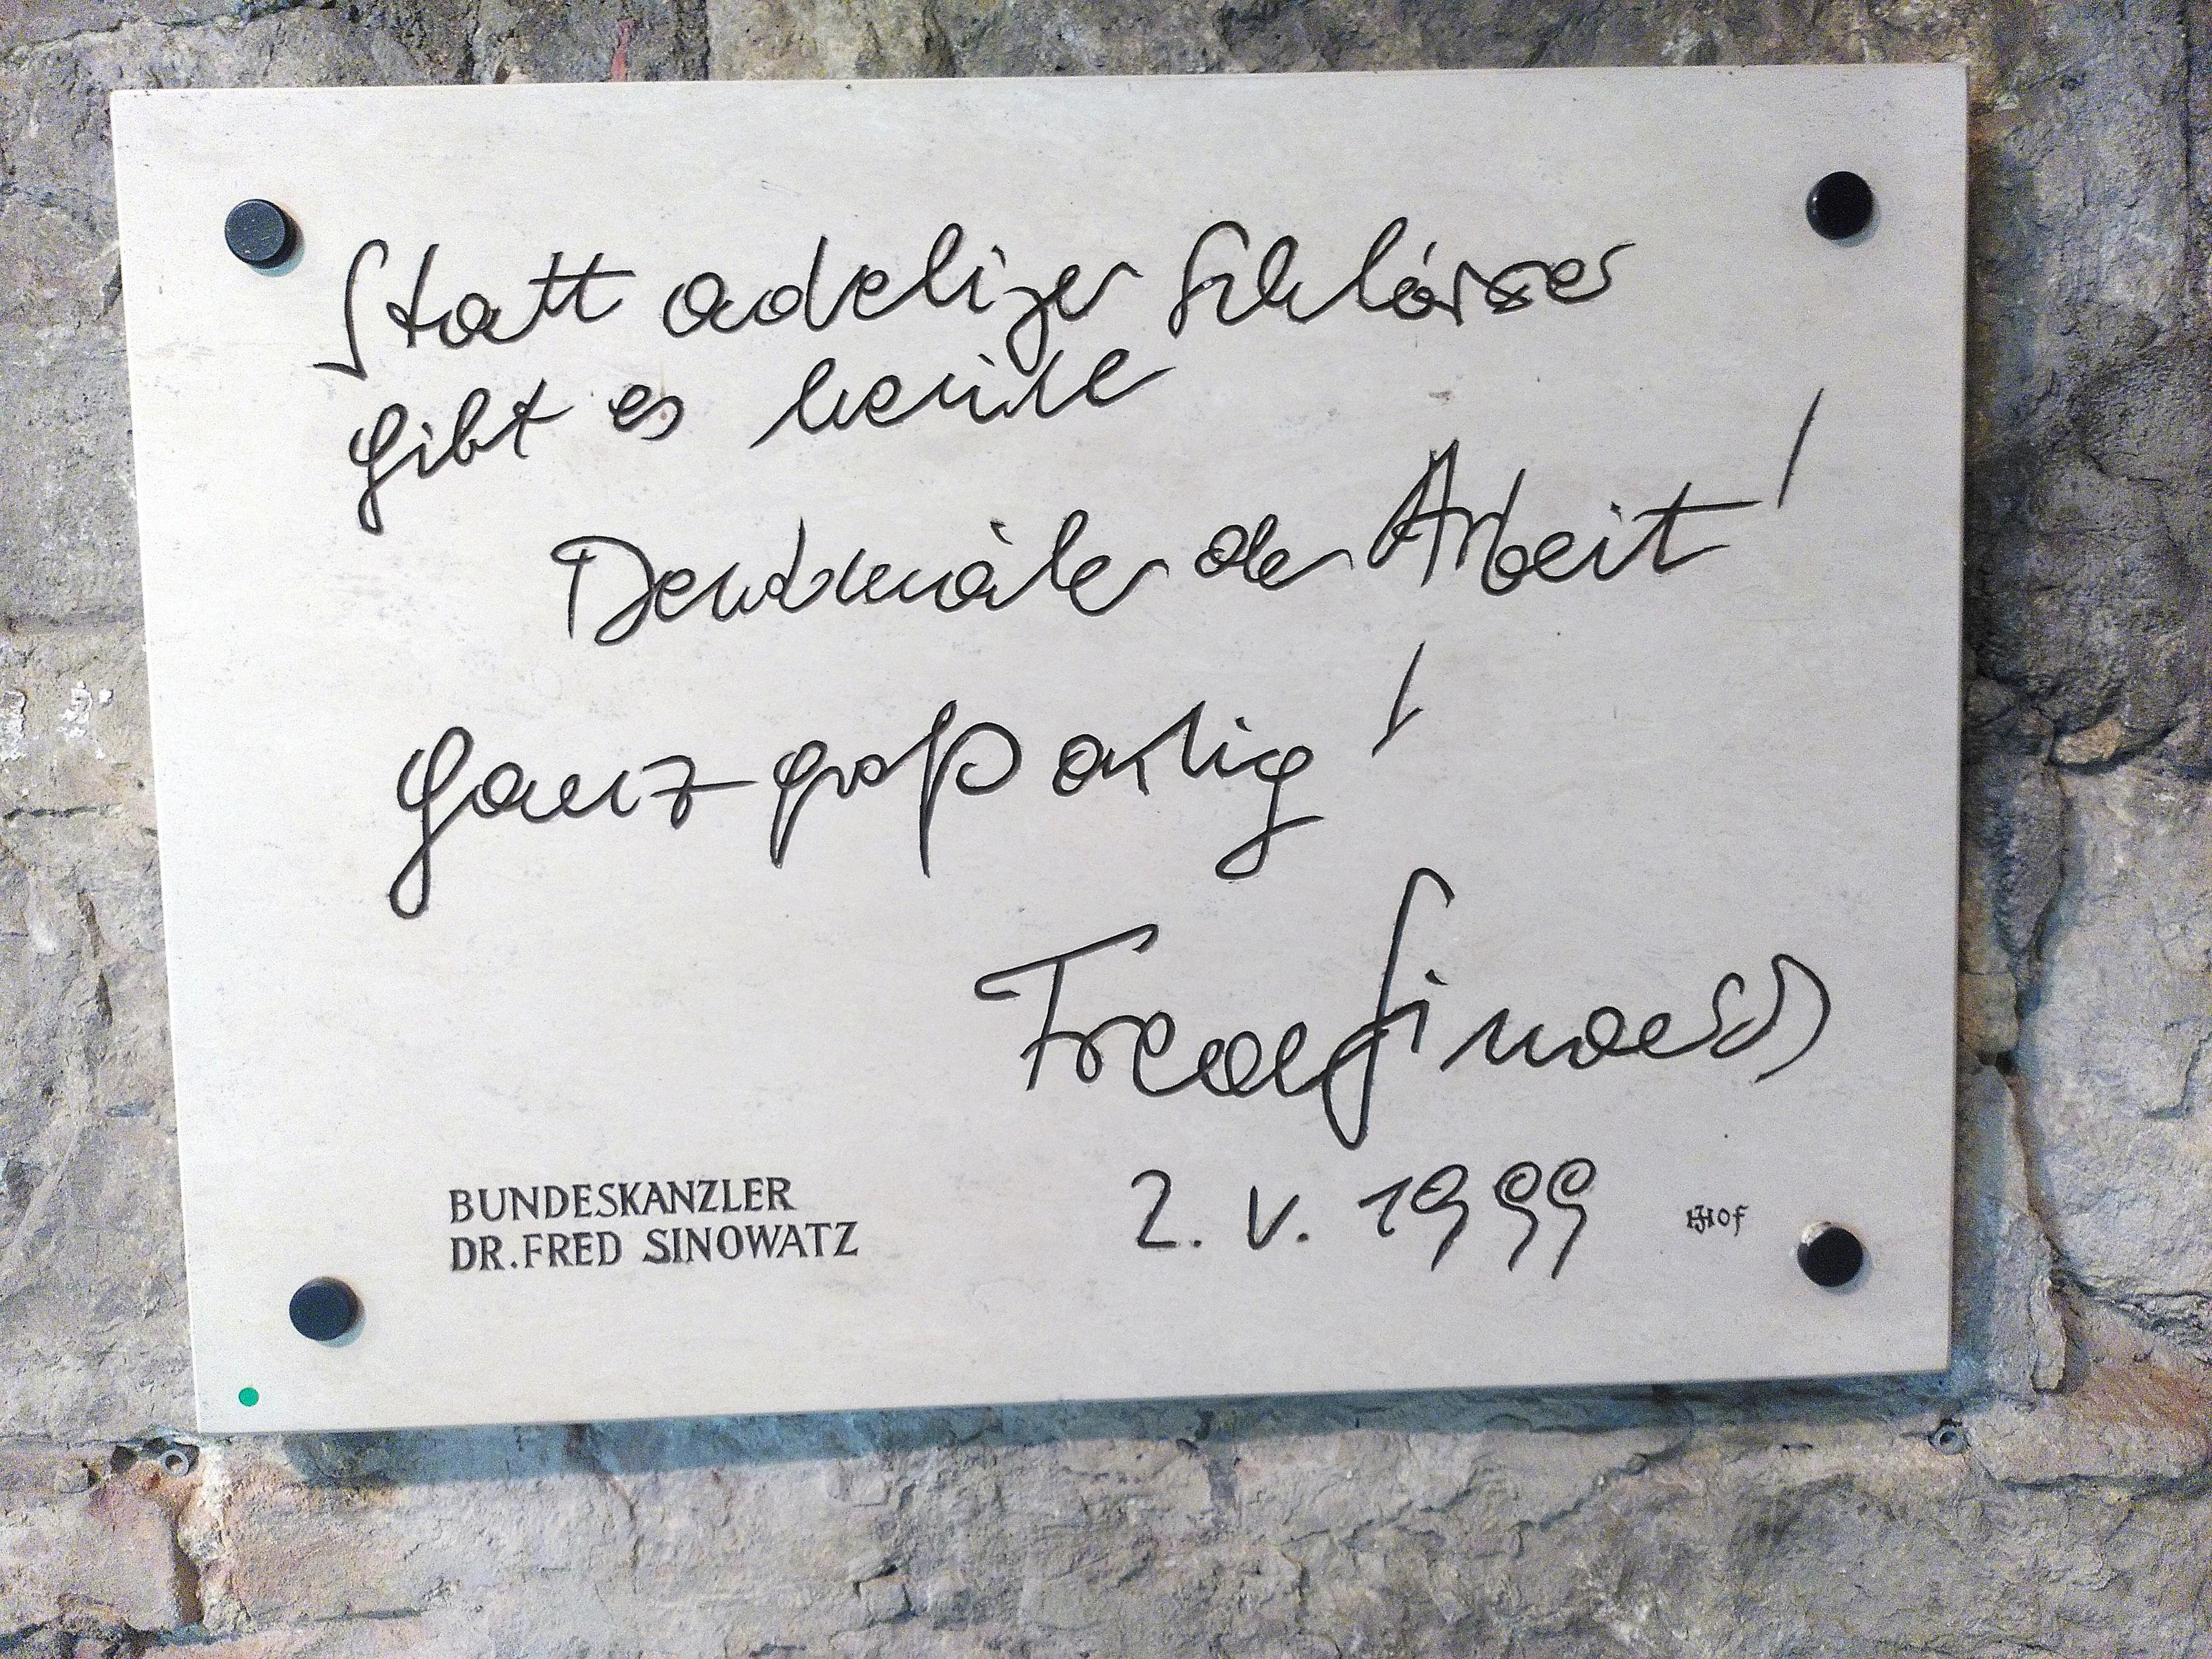 Statt adeliger Schlösser
gibt es heute
Denkmäler der Arbeit!
Ganz großartig!
Fred Sinowatz
BUNDESKANZLER
DR. FRED SINOWATZ
2. V. 1999
HOF